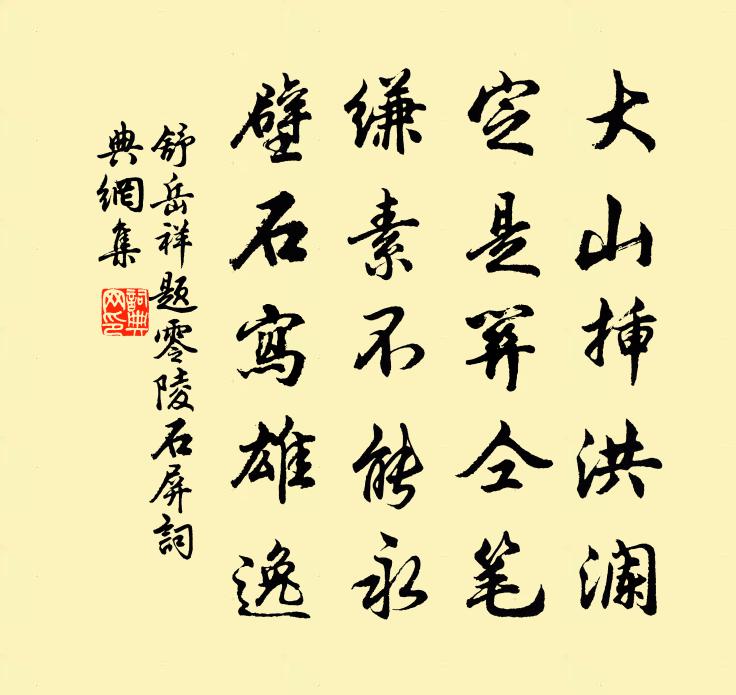 大山插洪澜
定是羿仝笔
缣素不能永
壁石写雄逸
舒岳祥题零陵石屏詞
典網集
詞典網印